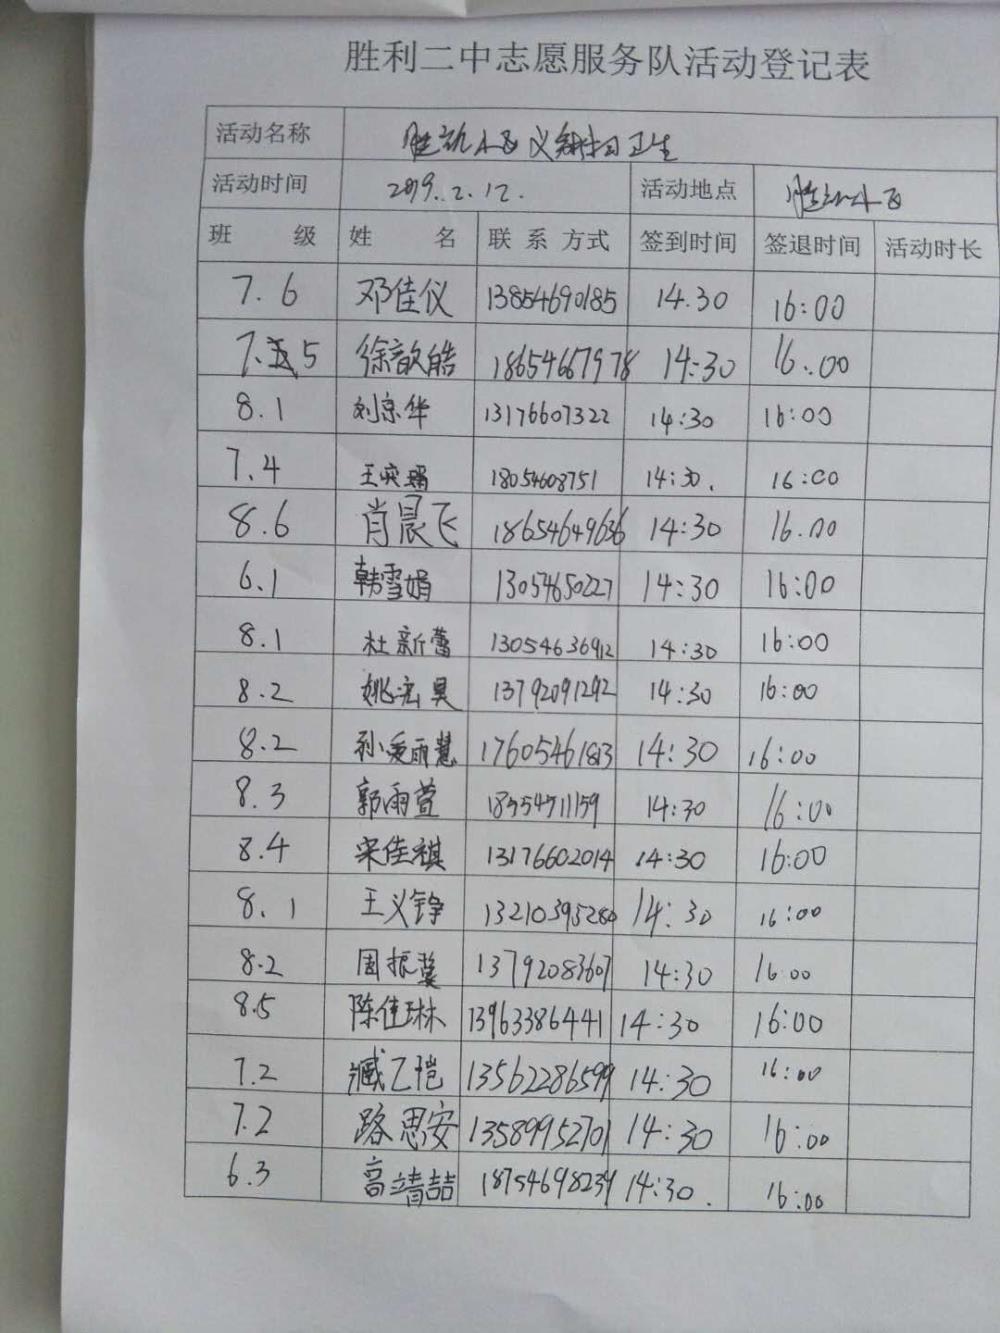 胜利二中志愿服务队活动登记表
活动名称 胜动小区义务打扫卫生
活动时间 2019.2.12. 活动地点 胜动小区
班 级 姓 名 联 系 方式 签到时间 签退时间 活动时长
7.6 邓佳仪 13854690185 14.30 16:00
7.5 徐歆皓 18654667978 14:30 16.00
8.1 刘京华 13176607322 14:30 16:00
7.4 王奕瑞 18054608751 14:30. 16:00
8.6 肖晨飞 18654649636 14:30 16.00
6.1 韩雪娟 13054650227 14:30 16:00
8.1 杜新蕾 13054636912 14:30 16:00
8.2 姚宏昊 13792091292 14:30 16:00
8.2 孙爱雨慧 17605461813 14:30 16:00
8.3 郭雨萱 18554511159 14:30 16:00
8.4 宋佳祺 13176602014 14:30 16:00
8.1 王义铮 13210395280 14:30 16:00
8.2 周振冀 13792083607 14:30 16:00
8.5 陈佳琳 13963386441 14:30 16:00
7.2 臧乙恺 13562286599 14:30 16:00
7.2 路思安 13589952701 14:30 16:00
6.3 高靖喆 18754698239 14:30. 16:00